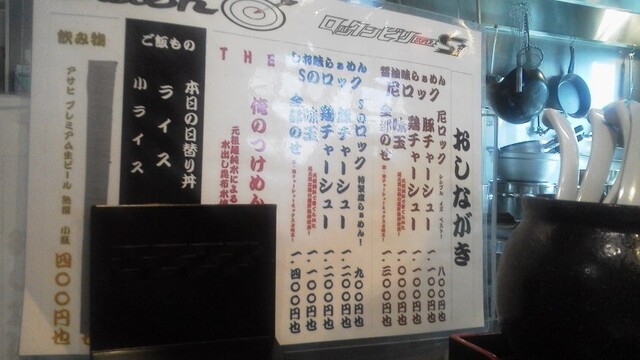 ロックンビリー S1
おしながき
醤油味らぁめん
尼ロック
尼ロック シンプル イズ ベスト! 八〇〇円也
豚チャーシュー 一、一〇〇円也
鶏チャーシュー 一、一〇〇円也
味玉 一、〇〇〇円也
全部のせ 一、三〇〇円也
しお味らぁめん
Sのロック
Sのロック 特製塩らぁめん! 九〇〇円也
豚チャーシュー 一、二〇〇円也
鶏チャーシュー 一、二〇〇円也
味玉 一、一〇〇円也
全部のせ 一、四〇〇円也
THE
俺のつけめん
元祖超純水による
水出し昆布水
ご飯もの
本日の日替り丼
ライス
小ライス
飲み物
アサヒ プレミアム生ビール 熟撰 小瓶 四〇〇円也